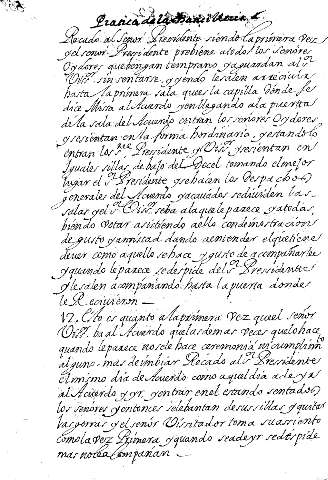 Practica de la Real
Recado al Señor Presidente siendo la primera vez
y el señor Presidente probiene a todos los señores
Oydores que bengan temprano, y aguardan al Sr
Visr sin sentarse, y yendo le salen a recivir
hasta la primera sala que es la capilla donde se
dice Misa al Acuerdo y en llegando a la puerta
de la sala del Acuerdo entran los señores Oydores
y se sientan en la forma hordinario, y estando lo
entran los Sres Presidente y Visr y se sientan en
yguales sillas debajo del Docel tomando el mejor
lugar el Sr Presidente y se hacen los Despachos
generales del Acuerdo y acavados se dividen las
salas y el Sr Visr se ba a la que le parece, y a todas
biendo votar asistiendo a ello con demostracion
de gusto y amistad dando a entender el que tiene
de ver como aquello se hace y gusto de acompañarse
y quando le parece se despide del Sr Presidente
y le salen acompañando hasta la puerta donde
le Recivieron
Esto es quanto a la primera vez que el señor
Visr ba al Acuerdo que las demas veces que lo hace
quando le parece no se le hace ceremonia ni cumplimto
alguno mas de imbiar Recado al Sr Presidente
el mismo dia de Acuerdo como aquel dia a de yr
al Acuerdo y yr, y entrar en el estando sentados
los señores y entonces se lebantan de sus sillas y quitar
las gorras y el señor Vissitador toma su assiento
como la vez Primera y quando se a de yr se despide
mas no le acompañan